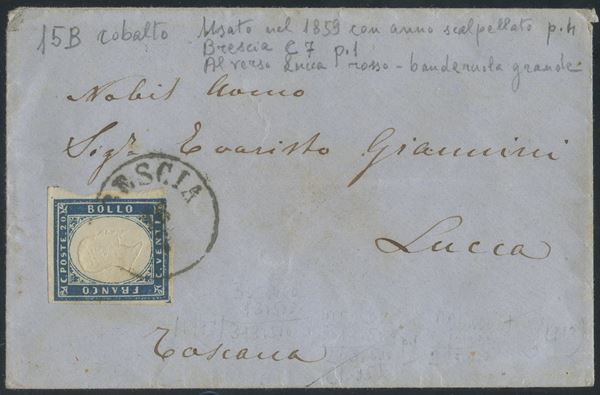 15B cobalto Usato nel 1859 con anno scalpellato p.ti
Brescia C7 p.1
Al verso Lucca rosso - banderuola grande
Nobil Uomo
Sigr. Evaristo Giannini
BRESCIA
BOLLO
C. POSTE. 20
C. VENTI
FRANCO
Lucca
Toscana